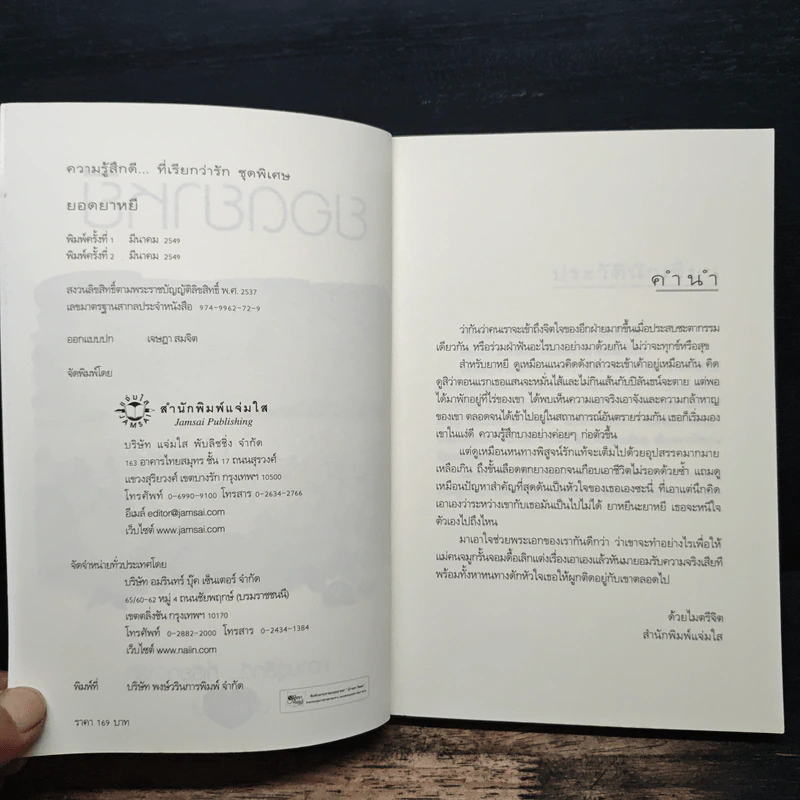 ความรู้สึกดี... ที่เรียกว่ารัก ชุดพิเศษ
ยอดยาหยี
พิมพ์ครั้งที่ 1 มีนาคม 2549
พิมพ์ครั้งที่ 2 มีนาคม 2549
สงวนลิขสิทธิ์ตามพระราชบัญญัติลิขสิทธิ์ พ.ศ. 2537
เลขมาตรฐานสากลประจำหนังสือ 974-9962-72-9
ออกแบบปก เจษฎา สมจิต
จัดพิมพ์โดย
สำนักพิมพ์แจ่มใส
Jamsai Publishing
บริษัท แจ่มใส พับลิชชิ่ง จำกัด
163 อาคารไทยสมุทร ชั้น 17 ถนนสุรวงศ์
แขวงสุริยวงศ์ เขตบางรัก กรุงเทพฯ 10500
โทรศัพท์ 0-6990-9100 โทรสาร 0-2634-2766
อีเมล์ editor@jamsai.com
เว็บไซต์ www.jamsai.com
จัดจำหน่ายทั่วประเทศโดย
บริษัท อมรินทร์ บุ๊ค เซ็นเตอร์ จำกัด
65/60-62 หมู่ 4 ถนนชัยพฤกษ์ (บรมราชชนนี)
เขตตลิ่งชัน กรุงเทพฯ 10170
โทรศัพท์ 0-2882-2000 โทรสาร 0-2434-1384
เว็บไซต์ www.naiin.com
พิมพ์ที่ บริษัท พงษ์วรินการพิมพ์ จำกัด
ราคา 169 บาท
คำนำ
ว่ากันว่าคนเราจะเข้าถึงจิตใจของอีกฝ่ายมากขึ้นเมื่อประสบชะตากรรม
เดียวกัน หรือร่วมฝ่าฟันอะไรบางอย่างมาด้วยกัน ไม่ว่าจะทุกข์หรือสุข
สำหรับยาหยี ดูเหมือนแนวคิดดังกล่าวจะเข้าเค้าอยู่เหมือนกัน คิด
ดูสิว่าตอนแรกเธอแสนจะหมั่นไส้และไม่กินเส้นกับปิลันธน์จะตาย แต่พอ
ได้มาพักอยู่ที่ไร่ของเขา ได้พบเห็นความเอาจริงเอาจังและความกล้าหาญ
ของเขา ตลอดจนได้เข้าไปอยู่ในสถานการณ์อันตรายร่วมกัน เธอก็เริ่มมอง
เขาในแง่ดี ความรู้สึกบางอย่างค่อยๆ ก่อตัวขึ้น
แต่ดูเหมือนหนทางพิสูจน์รักแท้จะเต็มไปด้วยอุปสรรคมากมาย
เหลือเกิน ถึงขั้นเลือดตกยางออกจนเกือบเอาชีวิตไม่รอดด้วยซ้ำ แถมดู
เหมือนปัญหาสำคัญที่สุดดันเป็นหัวใจของเธอเองซะนี่ ที่เอาแต่นึกคิด
เอาเองว่าระหว่างเขากับเธอมันเป็นไปไม่ได้ ยาหยีนะยาหยี เธอจะหนีใจ
ตัวเองไปถึงไหน
มาเอาใจช่วยพระเอกของเรากันดีกว่า ว่าเขาจะทำอย่างไรเพื่อให้
แม่คนจมูกรั้นจอมดื้อเลิกแต่งเรื่องเอาเองแล้วหันมายอมรับความจริงเสียที
พร้อมทั้งหาหนทางดักหัวใจเธอให้ผูกติดอยู่กับเขาตลอดไป
ด้วยไมตรีจิต
สำนักพิมพ์แจ่มใส